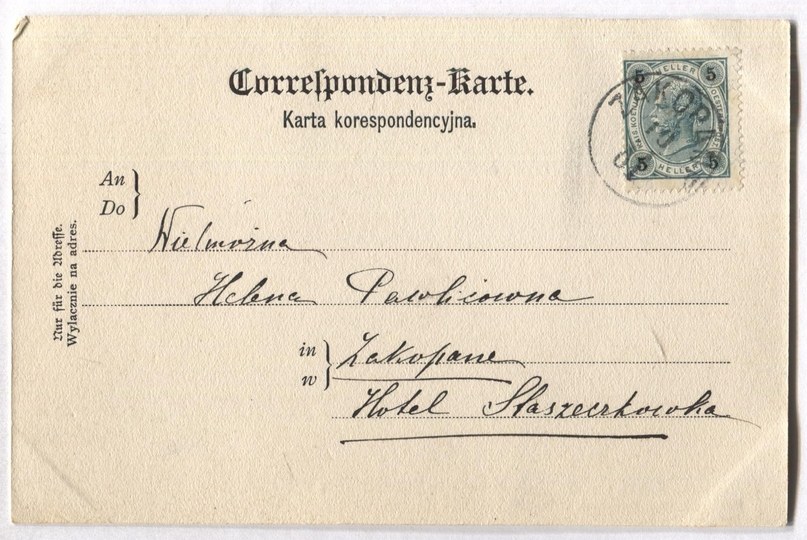 Correspondenz-Karte.
Karta korespondencyjna.
5 HELLER 5
5 HELLER 5
ZAKOPA
10
An
Do
Wielmożna
Helena Pawlicówna
in
w
Zakopane
Hotel Staszeczkówka
Nur für die Adresse.
Wylacznie na adres.